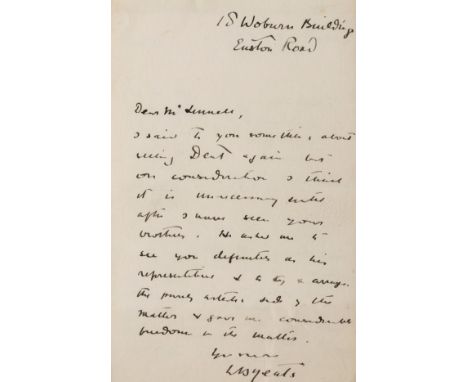 18 Woburn Buildings
Euston Road
Dear Mr Linnell,
I said to you something about
seeing Dent again but
on consideration I think
it is unnecessary until
after I have seen your
brothers. He asked me to
see you definitely as his
representative & to try & arrange
the purely artistic side of the
matter & gave me considerable
freedom in the matter.
Yrs sincerely
WB Yeats